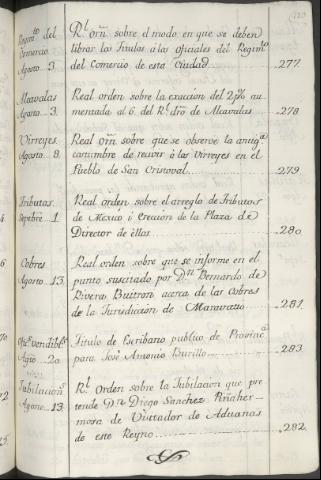 Regimto. del
Comercio
Agosto. 3.
Rl. orñ. sobre el modo en que se deben
librar los titulos á los oficiales del Regimto.
del Comercio de esta Ciudad 277.
Alcavalas
Agosto. 3.
Real orden sobre la exaccion del 2 p% au
mentada al 6. del Rl. dro de Alcavalas 278
Virreyes.
Agosto 8.
Real orñ. sobre que se observe la antiga.
costumbre de recivir á los Virreyes en el
Pueblo de San Cristoval 279.
Tributos.
Sepbre. 1.
Real orden sobre el arreglo de Tributos
de Mexico i Creacion de la Plaza de
Director de éllos 280
Cobres
Agosto. 13.
Real orden sobre que se informe en el
punto suscitado por Dn. Bernardo de
Rivera Buitron acerca de los Cobres
de la Jurisdicion de Maravatio 281.
Ofis. vendibles
Agto. 20
Titulo de Escribano publico de Provinca.
para José Antonio Burillo 283.
Jubilacions.
Agosto. 13.
Rl. Orden sobre la Jubilacion que pre
tende Dn. Diego Sanchez Piñaher-
mosa de Visitador de Aduanas
de este Reyno 282.